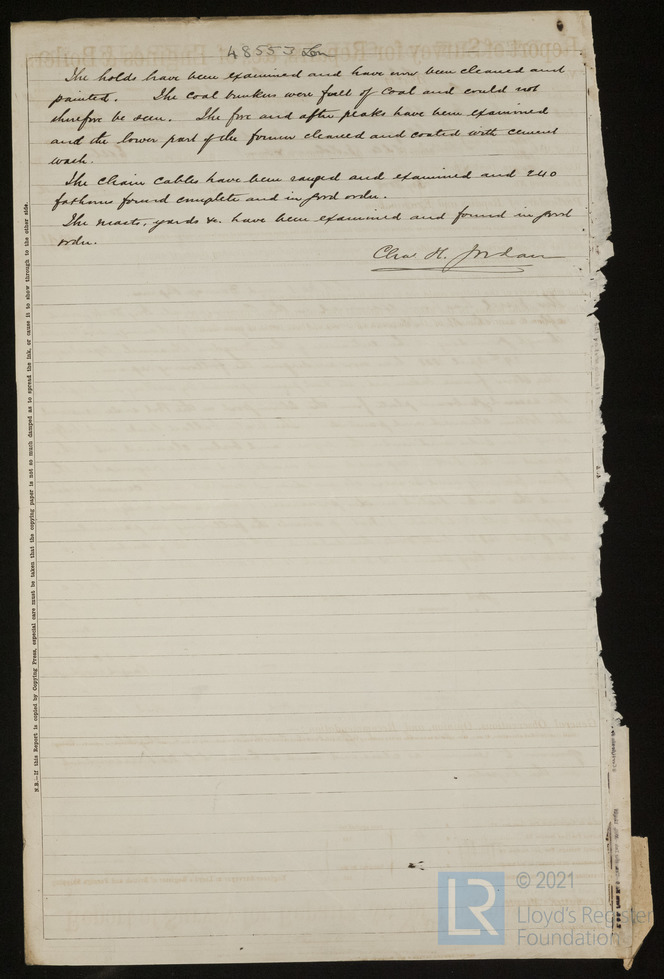 48553 Lon
The holds have been examined and have now been cleaned and
painted. The coal bunkers were full of coal and could not
therefore be seen. The fore and after peaks have been examined
and the lower part of the former cleaned and coated with cement
wash.
The chain cables have been ranged and examined and 240
fathoms found complete and in good order.
The masts, yards &c. have been examined and found in good
order.
Chas H. Jordan
N.B.—If this Report is copied by Copying Press, especial care must be taken that the copying paper is not so much damped as to spread the Ink, or cause it to show through to the other side.
LR
© 2021
Lloyd's Register
Foundation